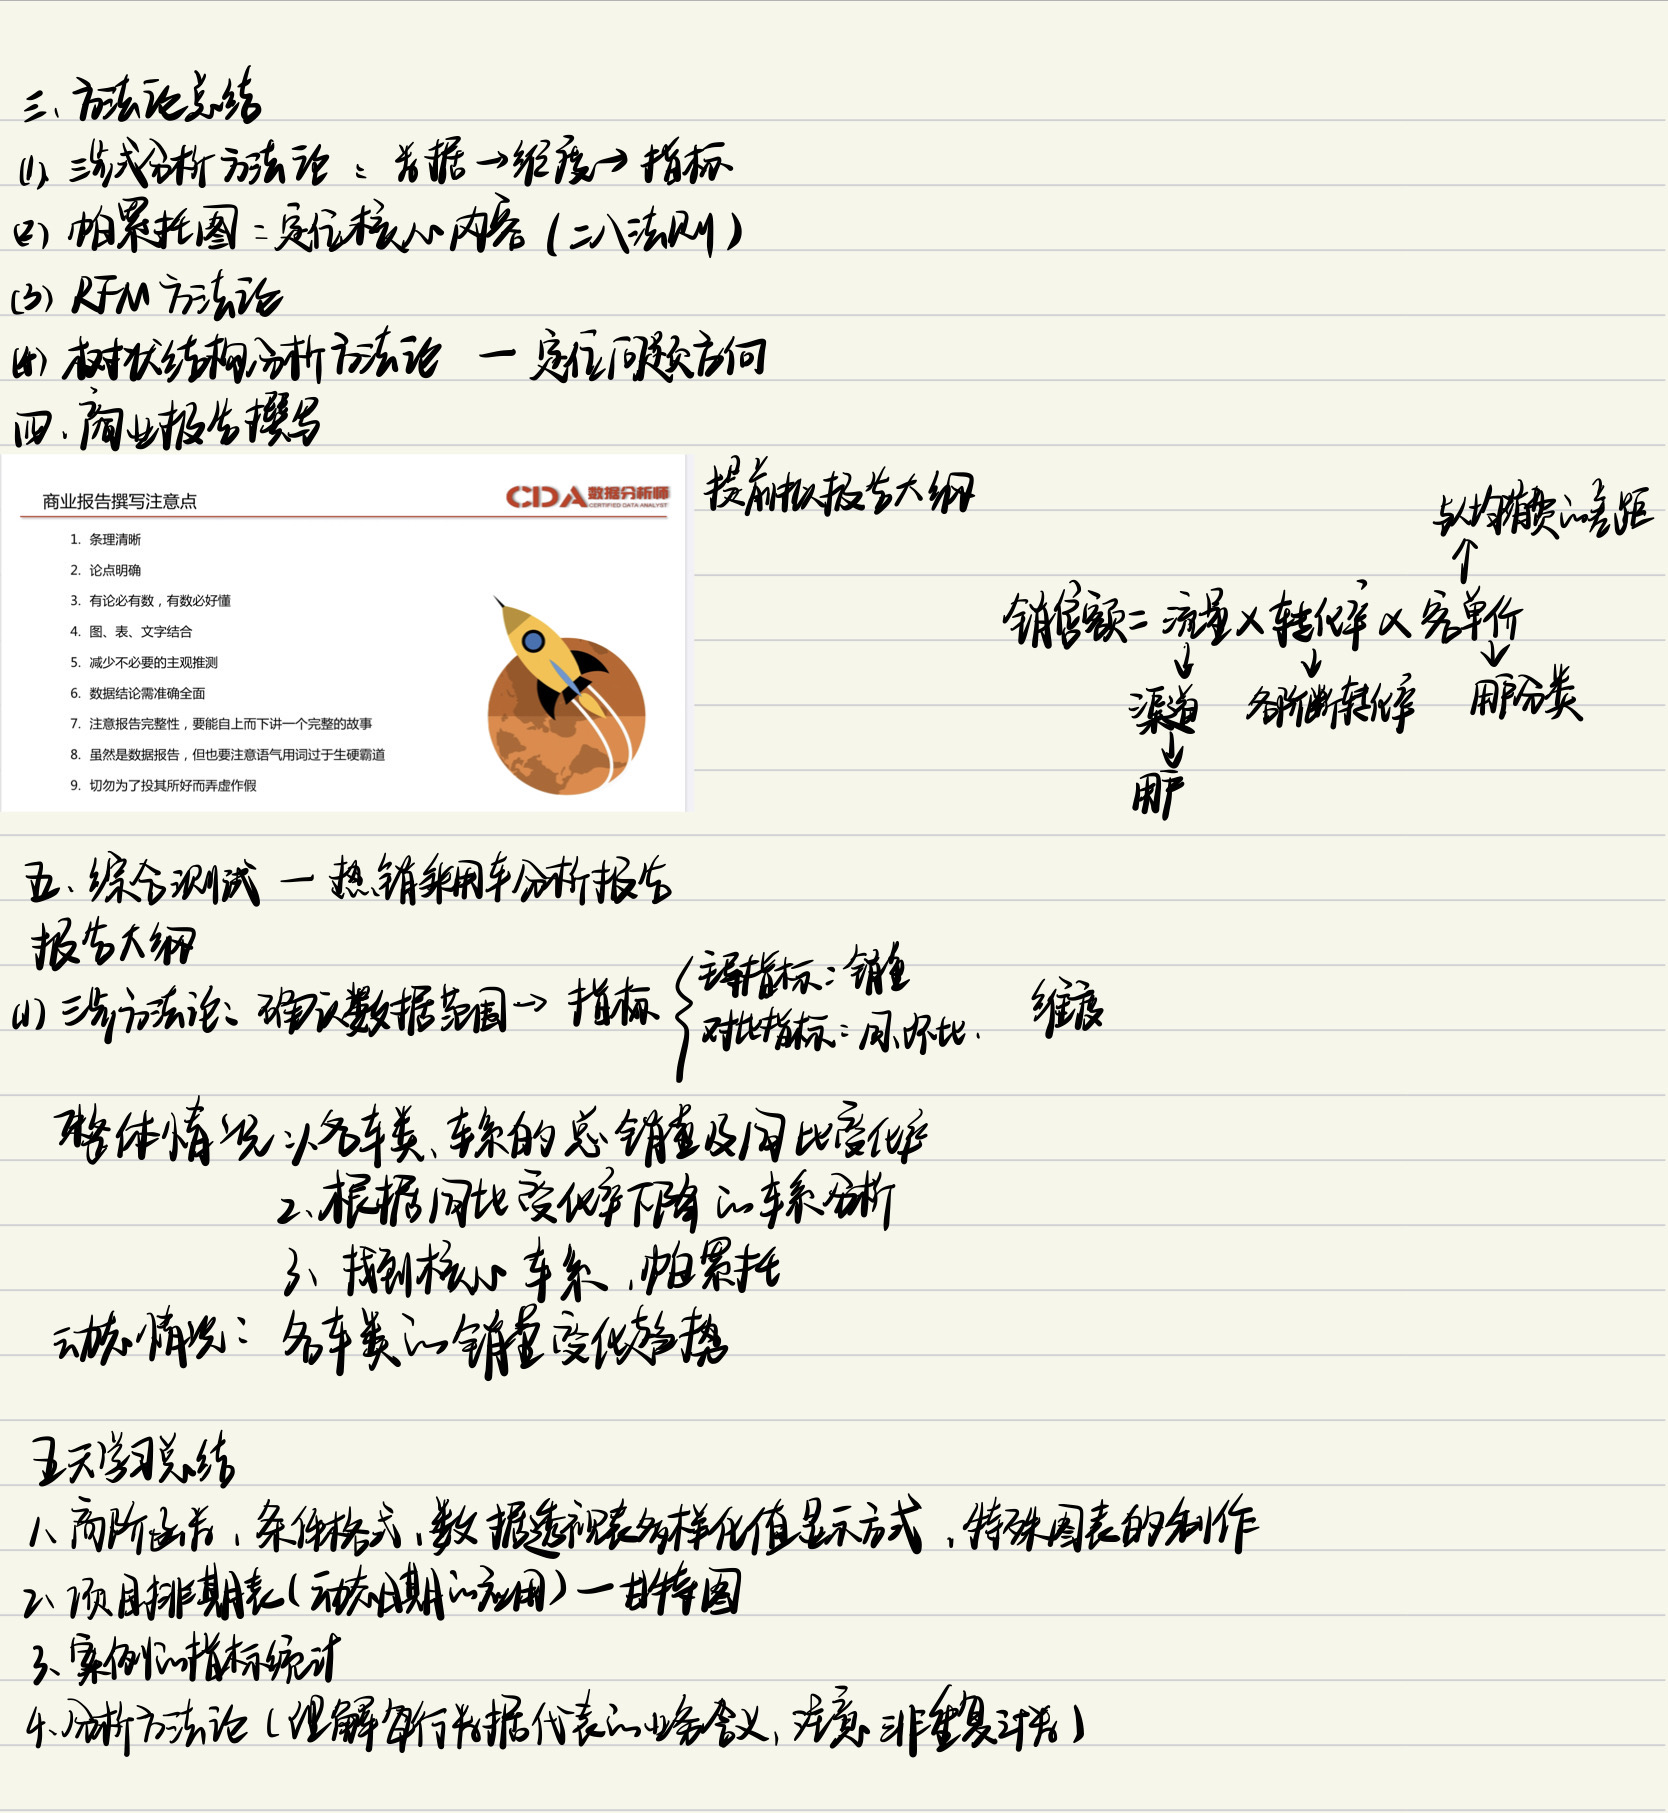 三、方法论总结
(1) 三步式分析方法论：数据→维度→指标
(2) 帕累托图：定位核心内容（二八法则）
(3) RFM方法论
(4) 树状结构分析方法论 — 定位问题方向
四、商业报告撰写
商业报告撰写注意点
CDA数据分析师
CERTIFIED DATA ANALYST
1. 条理清晰
2. 论点明确
3. 有论必有数，有数必好懂
4. 图、表、文字结合
5. 减少不必要的主观推测
6. 数据结论需准确全面
7. 注意报告完整性，要能自上而下讲一个完整的故事
8. 虽然是数据报告，但也要注意语气用词过于生硬霸道
9. 切勿为了投其所好而弄虚作假
提前拟报告大纲
与人均消费的差距
↑
销售额=流量×转化率×客单价
↓ ↓ ↓
渠道 各阶断转化率 用户分类
↓
用户
五、综合测试 — 热销乘用车分析报告
报告大纲
(1) 三步方法论：确认数据范围→ 指标 { 主要指标：销量
对比指标：同、环比. 维度
整体情况：1、各车类、车系的总销量及同比变化率
2、根据同比变化率下降的车系分析
3、找到核心车系，帕累托
动态情况：各车类的销量变化趋势
五天学习总结
1、高阶函数，条件格式，数据透视表多样化值显示方式，特殊图表的制作
2、项目排期表（动态日期的应用）— 甘特图
3、案例的指标统计
4、分析方法论（理解每行数据代表的业务含义，注意非重复计数）